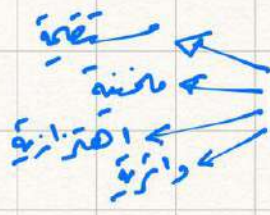 مستقيمة
منحنية
اهتزازية
دائرية